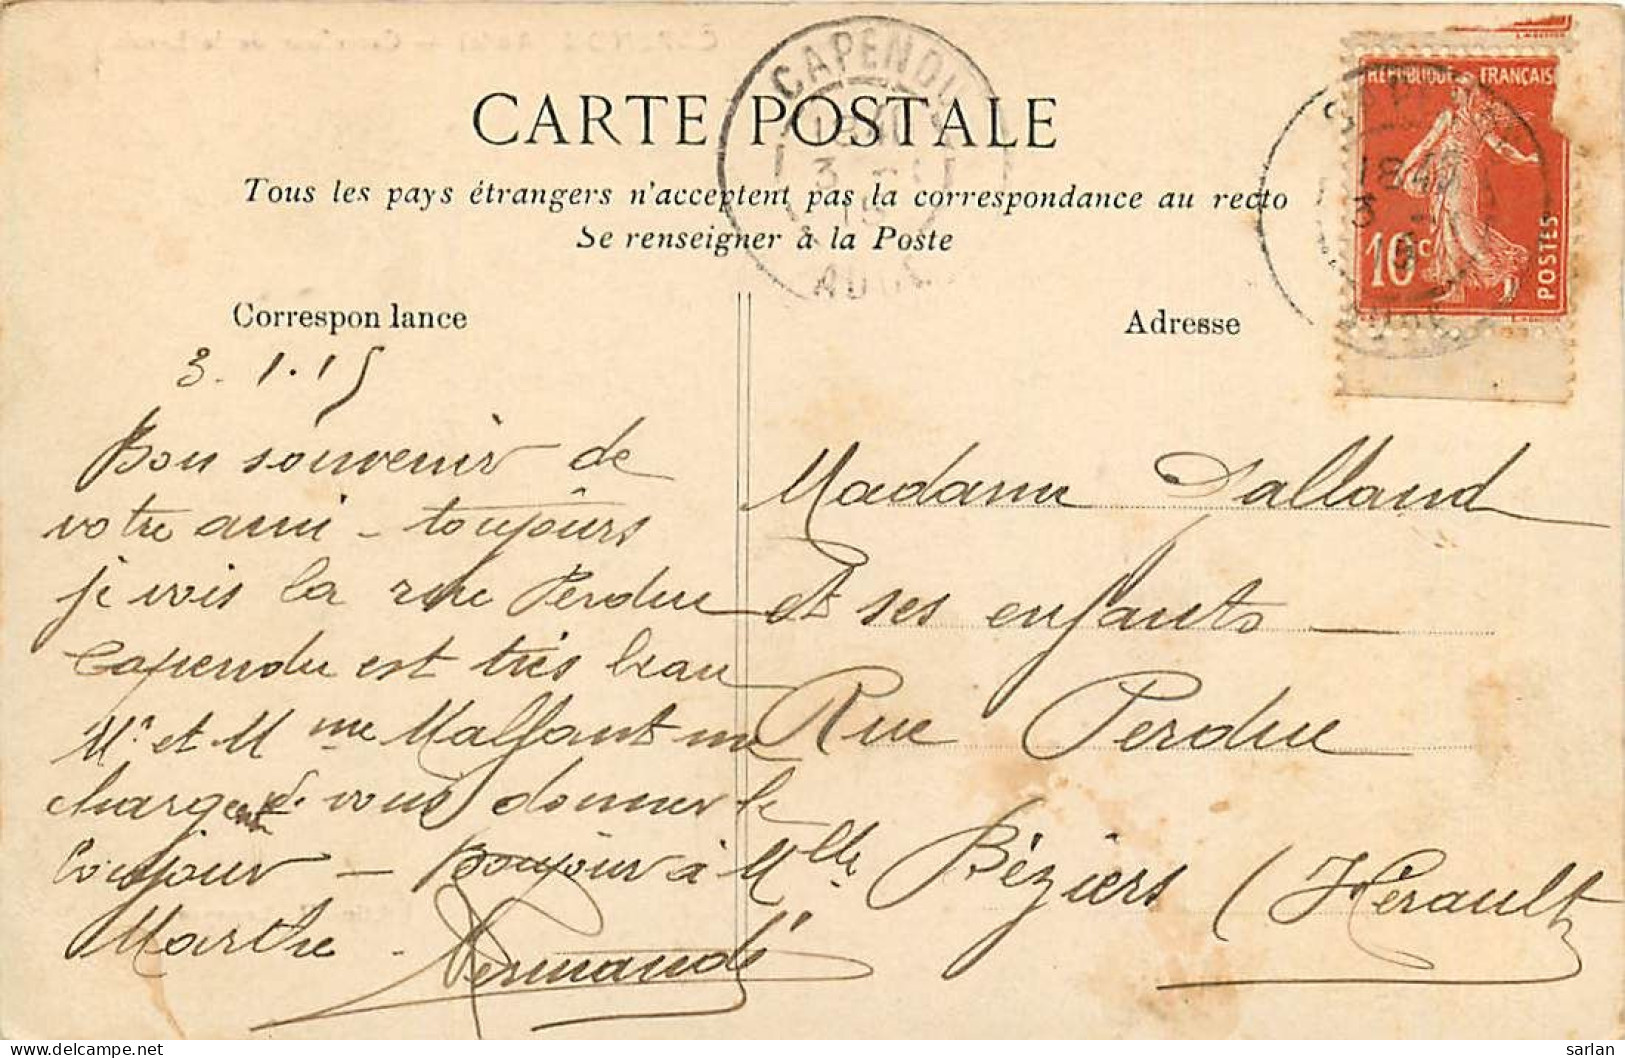 CARTE POSTALE
Tous les pays étrangers n'acceptent pas la correspondance au recto
Se renseigner à la Poste
CAPENDU
18 40
3 - 1
15
AUDE
RÉPUBLIQUE FRANÇAISE
10 c
POSTES
18 40
3 - 1
15
Correspondance
Adresse
3.1.15
Bon souvenir de
votre ami - toujours
je vois la rue Perdue
Capendu est très beau
Mr et Mme Malfant me
chargent de vous donner le
bonjour - Bonjour à Mlle
Marthe -
Madame Dalland
et ses enfants -
Rue Perdue
Béziers (Hérault
sarlan